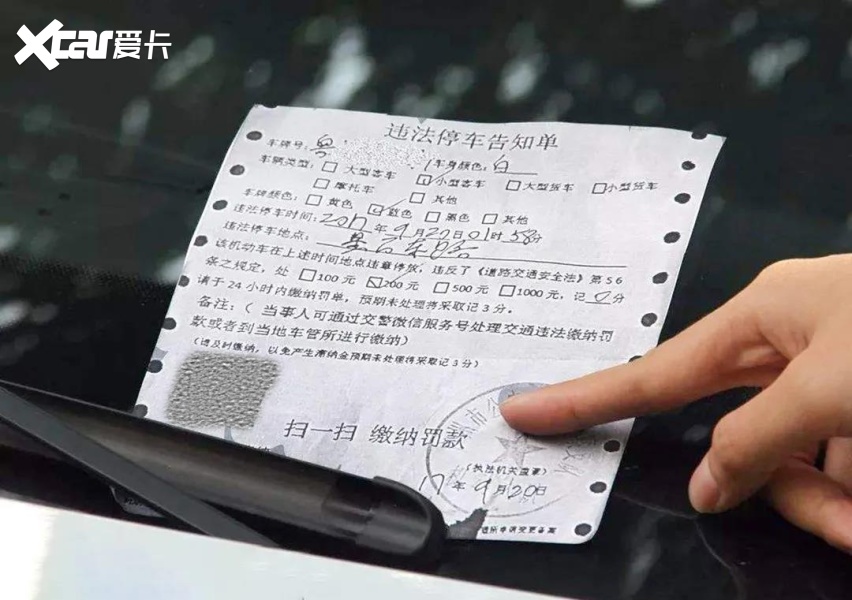 Xcar爱卡
违法停车告知单
车牌号:粤 车身颜色:白
车辆类型: 大型客车 小型客车 大型货车 小型货车
摩托车 其他
车牌颜色: 黄色 蓝色 黑色 其他
违法停车时间:2017年9月20日01时58分
违法停车地点:
该机动车在上述时间地点违章停放,违反了《道路交通安全法》第56
条之规定,处 100元 200元 500元 1000元,记0分
请于24小时内缴纳罚单,预期未处理将采取记3分。
备注:(当事人可通过交警微信服务号处理交通违法缴纳罚
款或者到当地车管所进行缴纳)
(请及时缴纳,以免产生滞纳金预期未处理将采取记3分)
扫一扫 缴纳罚款
(执法机关盖章)
17年9月20日